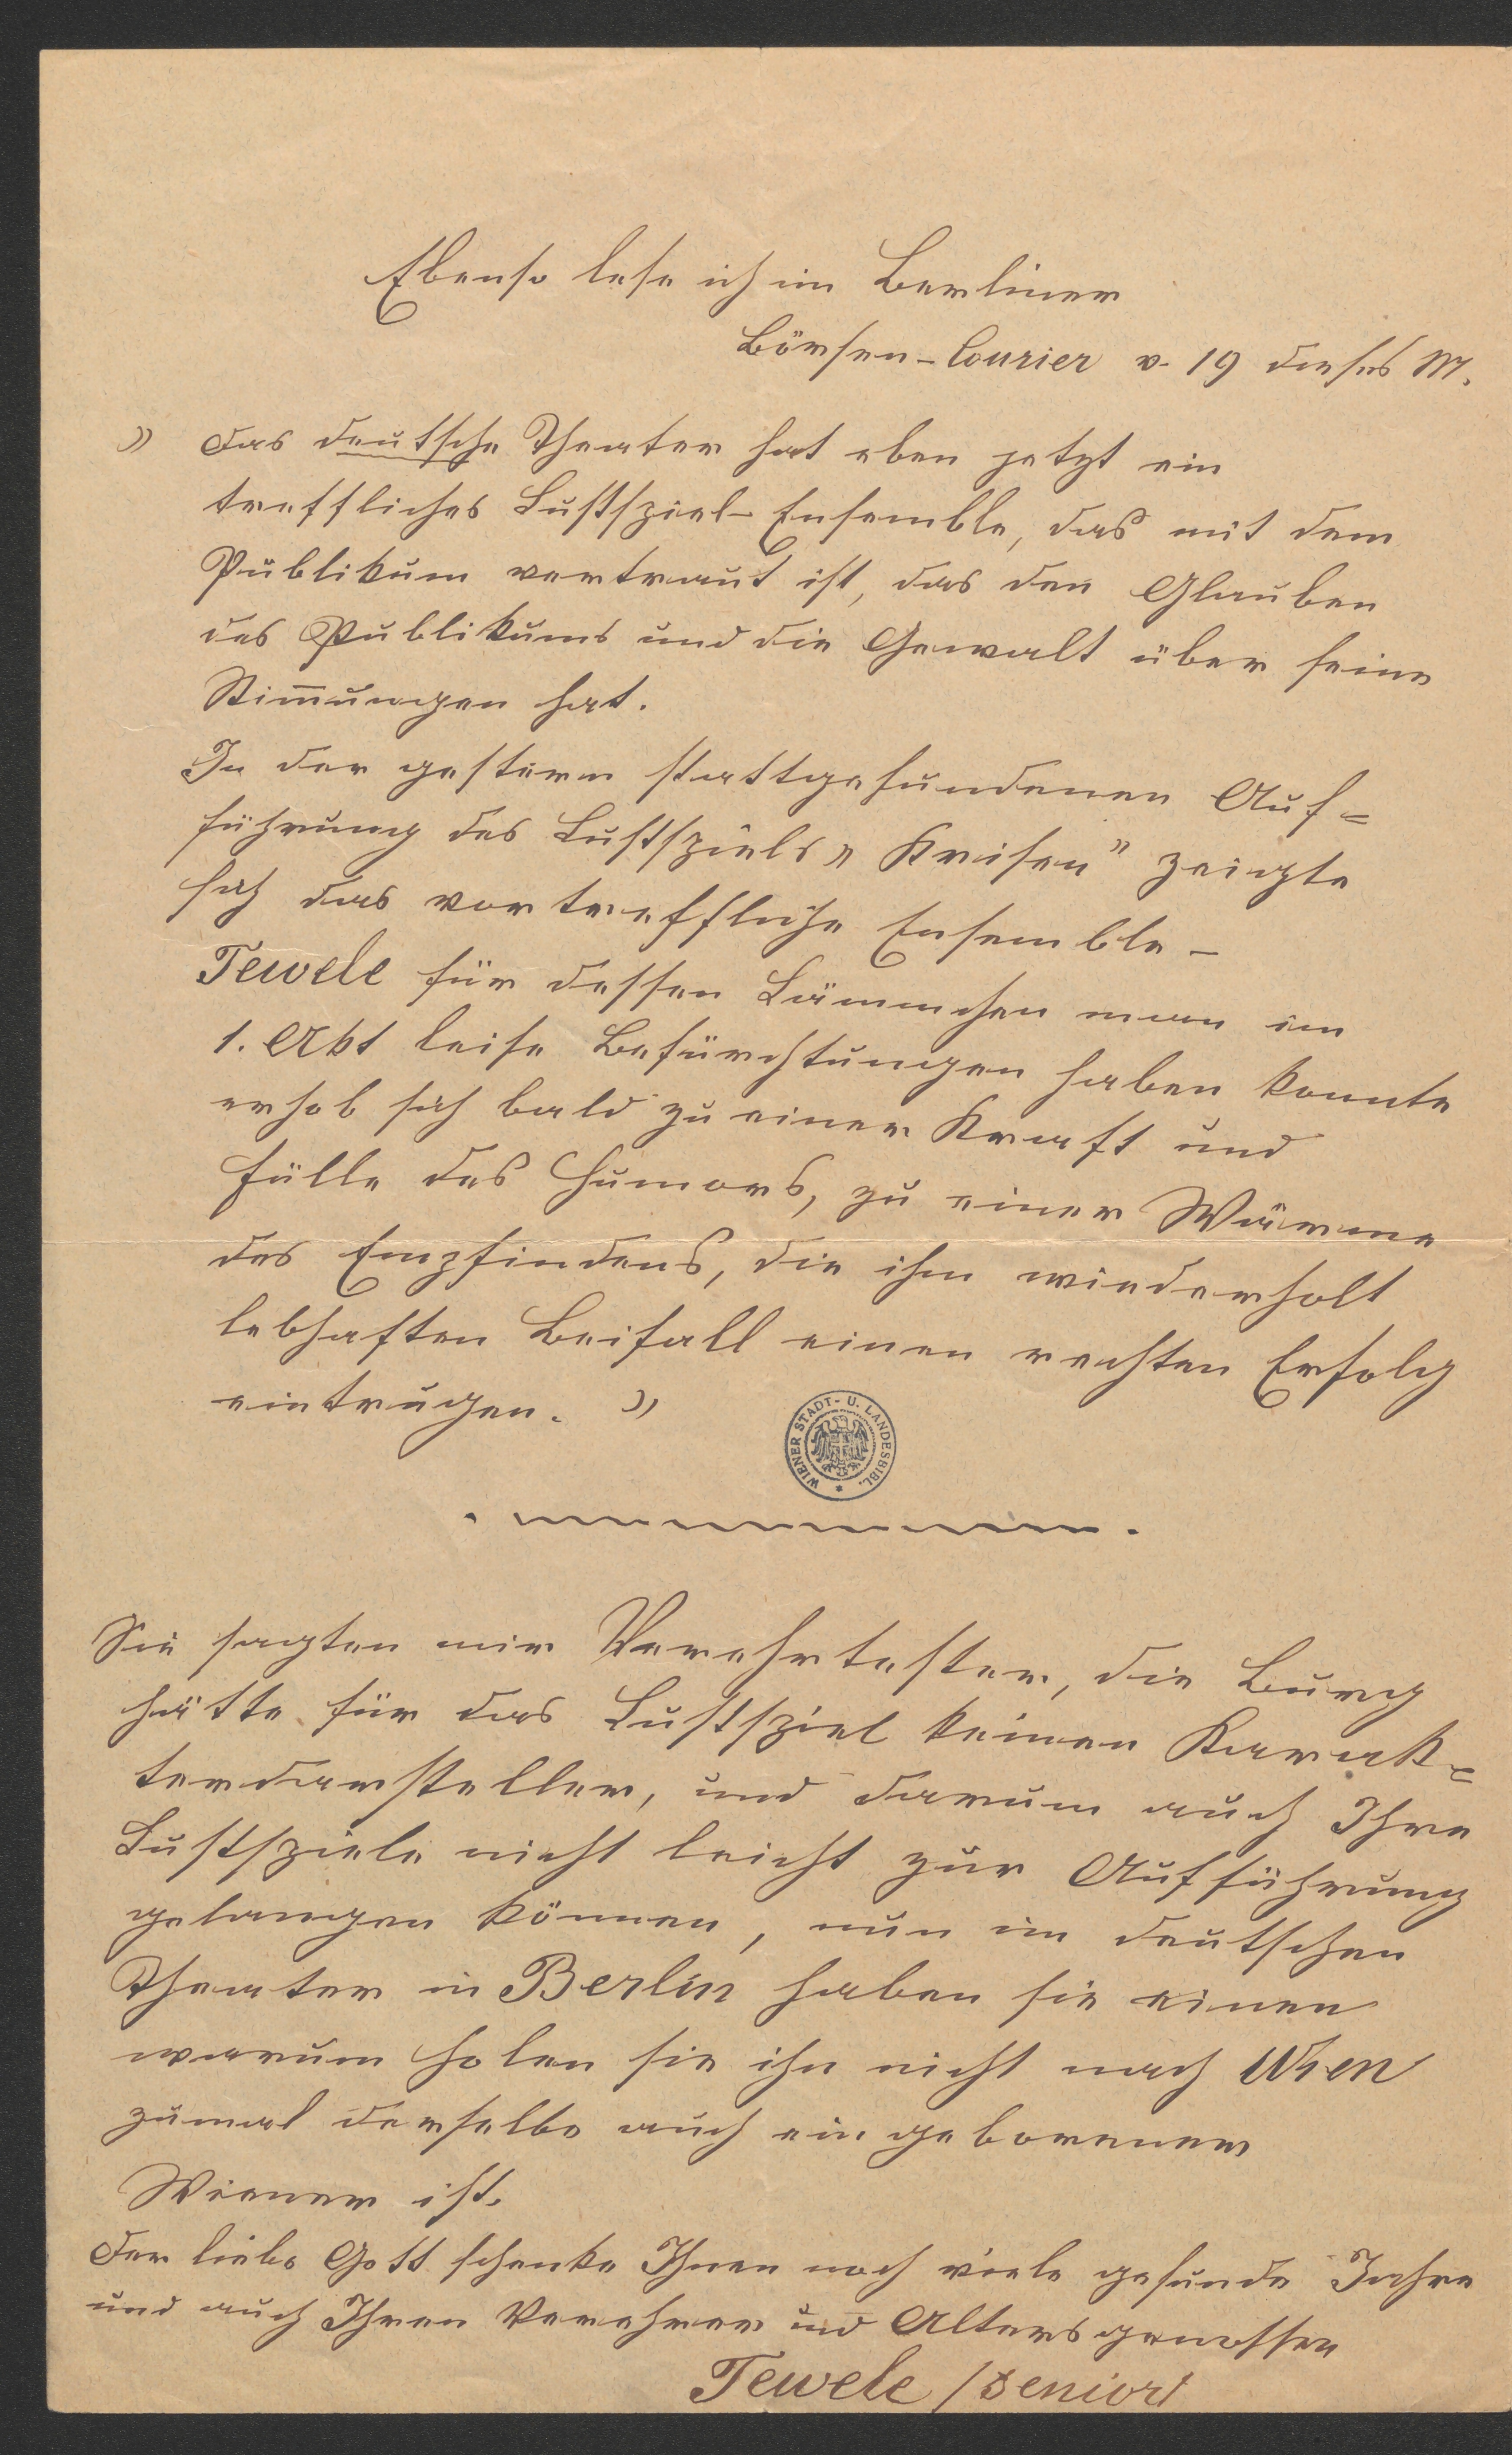 Ebenso lese ich im Berliner
Börsen-Courier v. 19 dieses M.
» Das deutsche Theater hat eben jetzt ein
treffliches Lustspiel-Ensemble, das mit dem
Publikum vertraut ist, das den Glauben
des Publikums und die Gewalt über seine
Stim̅ungen hat.
In der gestern stattgefundenen Auf=
führung des Lustspiels „Krisen" zeigte
sich das vortreffliche Ensemble –
Tewele für dessen Lämmchen man im
1. Akt leise Befürchtungen haben konnte
erhob sich bald zu einer Kraft und
Fülle des Humors, zu einer Wärme
des Empfindens, die ihm wiederholt
lebhaften Beifall einen rechten Erfolg
eintrugen. »
WIENER STADT- U. LANDESBIBL.
Sie sagten mir Verehrtester, die Burg
hätte für das Lustspiel keinen Karak=
terdarsteller, und darum auch Ihre
Lustspiele nicht leicht zur Aufführung
gelangen können, nun im deutschen
Theater in Berlin haben sie einen
warum holen sie ihn nicht nach Wien
zumal derselbe auch ein geborener
Wiener ist.
Der liebe Gott schenke Ihnen noch viele gesunde Jahre
und auch Ihren Verehrer und Altersgenossen
Tewele /senior/